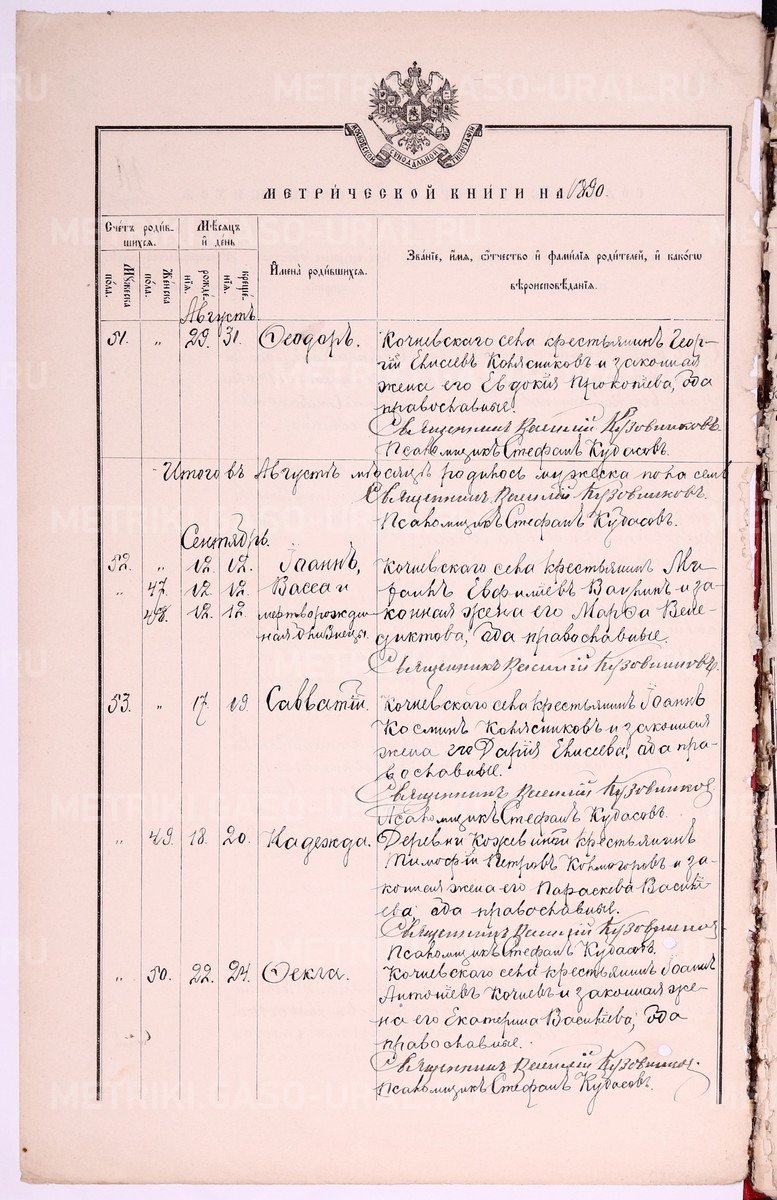 МОСКОВСКОЙ СѴНОДАЛЬНОЙ ТИПОГРАФІИ
МЕТРИ́ЧЕСКОЙ КНИ́ГИ НА 1890.
Сче́тъ роди́в-
шихся.
Мѣ́сяцъ
и҆ де́нь
Мꙋ́жеска по́ла.
Же́нска по́ла.
рожде́нїѧ.
креще́нїѧ.
И҆мена̀ роди́вшихся.
Зва́нїе, и҆́мѧ, ѻ҆́тчество и҆ фами́лїѧ роди́телей, и҆ како́гѡ
вѣроисповѣ́данїѧ.
Августъ.
51. „ 29. 31. Ѳеодоръ. Кочневскаго села крестьянинъ Геор-
гій Елисеевъ Колясниковъ и законная
жена его Евдокія Прокопіева, оба
православные.
Священникъ Василій Кузовниковъ
Псаломщикъ Стефанъ Кудасовъ.
Итого въ Августѣ мѣсяцѣ родилось мужеска пола семь
Священникъ Василій Кузовниковъ.
Псаломщикъ Стефанъ Кудасовъ.
Сентябрь.
52. „ 12. 12. Іоаннъ, Кочневскаго села крестьянинъ Ми-
„ 47. 12. 12. Васса и хаилъ Евфиміевъ Ваулинъ и за-
48. 12. 12. мертворожден- конная жена его Марѳа Вене-
ная дѣвица. диктова, оба православные.
Священникъ Василій Кузовниковъ.
53. „ 17. 19 Савватій. Кочневскаго села крестьянинъ Іоаннъ
Косминъ Колясниковъ и законная
жена его Дарія Елисеева, оба пра-
вославные.
Священникъ Василій Кузовников
Псаломщикъ Стефанъ Кудасовъ.
„ 49. 18. 20. Надежда. Деревни крестьянинъ
Тимофій Петровъ Колмогоровъ и за-
конная жена его Параскева Василі-
ева, оба православные.
Священникъ Василій Кузовников
Псаломщикъ Стефанъ Кудасовъ.
„ 50. 22. 24. Ѳекла. Кочневскаго села крестьянинъ Іоаннъ
Антоніевъ Кочневъ и законная же-
на его Екатерина Василіева, оба
православные.
Священникъ Василій Кузовников.
Псаломщикъ Стефанъ Кудасовъ.